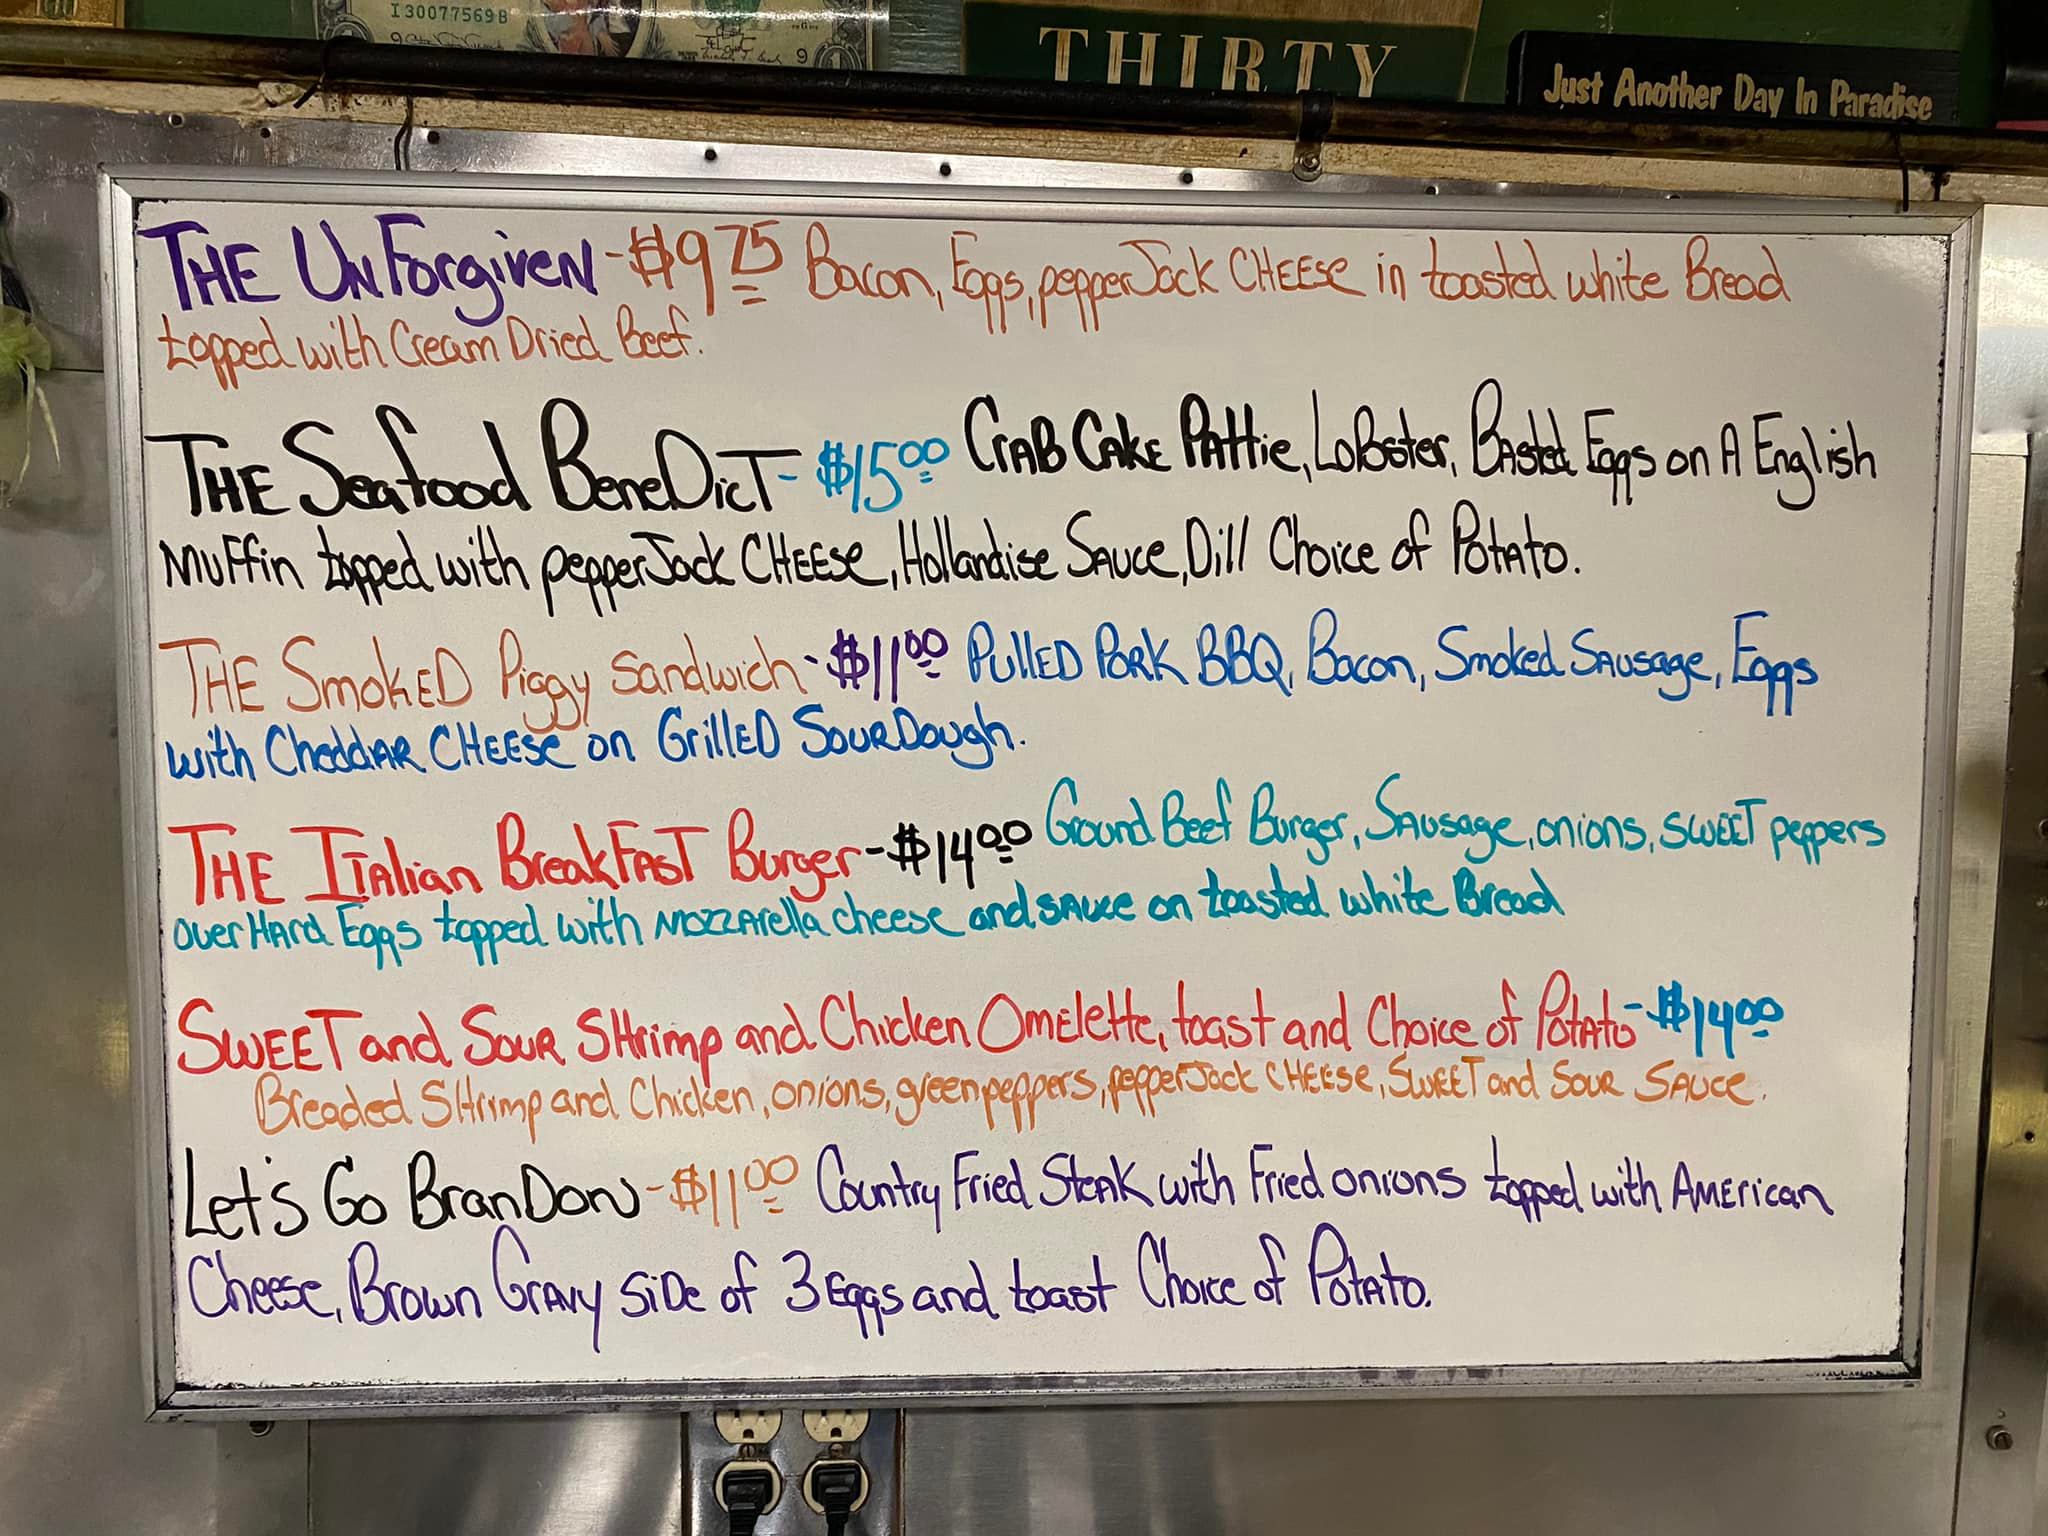 I 30077569 B
9
9
THIRTY
Just Another Day In Paradise
THE UnForgiven - $9.75 Bacon, Eggs, pepperJack CHEESE in toasted white Bread
topped with Cream Dried Beef.
THE Seafood BeneDicT - $15.00 CRAB CAKE Pattie, Lobster, Basted Eggs on A English
Muffin topped with pepperJack CHEESE, Hollandise Sauce, Dill Choice of Potato.
THE SmokED Piggy Sandwich - $11.00 PULLED PORK BBQ, Bacon, Smoked Sausage, Eggs
with CheddAR CHEESE on GrillED SourDough.
THE ITAlian BreakFAST Burger - $14.00 Ground Beef Burger, Sausage, onions, SWEET peppers
over HARd Eggs topped with Mozzarella cheese and sauce on toasted white Bread
SWEET and Sour SHrimp and Chicken Omelette, toast and Choice of Potato - $14.00
Breaded SHrimp and Chicken, onions, green peppers, pepperJack CHEESE, SWEET and Sour SAUCE.
Let's Go BranDon - $11.00 Country Fried Steak with Fried onions topped with American
Cheese, Brown Gravy side of 3 Eggs and toast Choice of Potato.